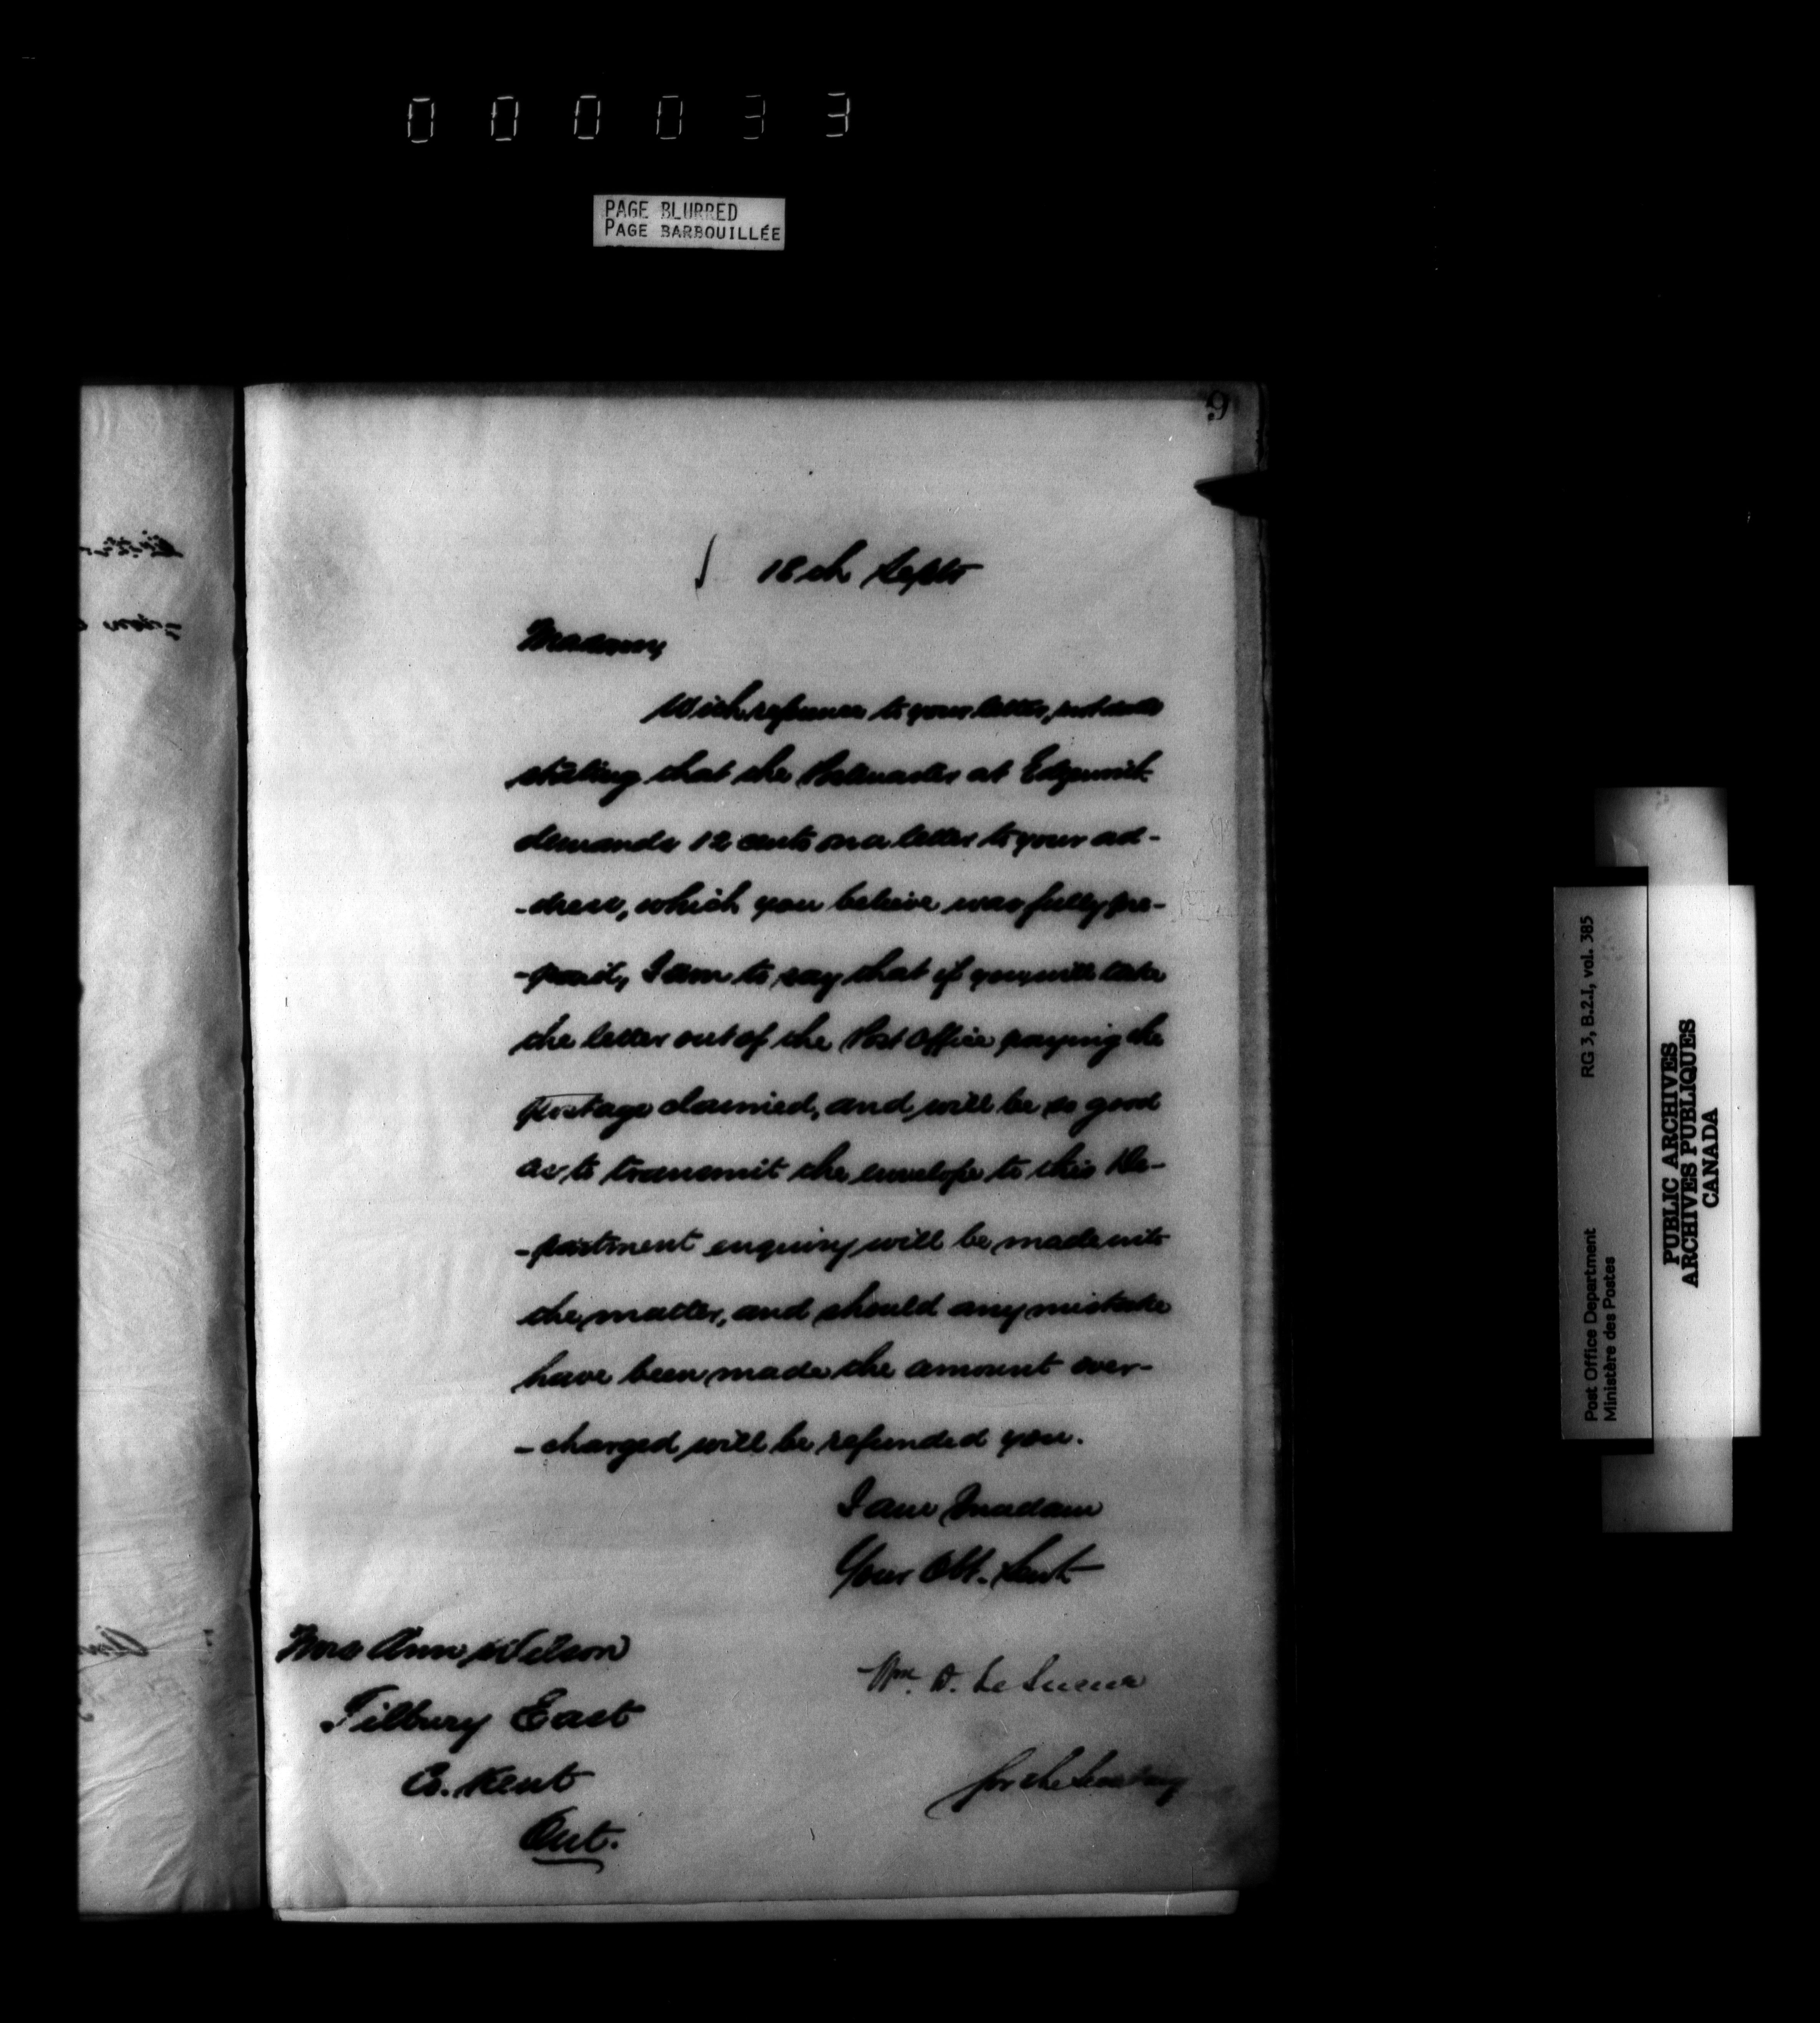 000033
PAGE BLURRED
PAGE BARBOUILLÉE
9
18th Septr
Madam,
With reference to your letter, not dated
stating that the Postmaster at Edgeworth
demands 12 cents on a letter to your ad-
-dress, which you believe was fully pre-
-paid, I am to say that if you will take
the letter out of the Post Office paying the
postage claimed, and will be so good
as to transmit the envelope to this De-
-partment enquiry will be made into
the matter, and should any mistake
have been made the amount over-
-charged will be refunded you.
I am Madam
Your Obt. Servt
Wm. D. LeSueur
for the Secretary
Mrs Ann Wilson
Tilbury East
Co. Kent
Ont.
Post Office Department RG 3, B.2.I, vol. 385
Ministère des Postes
PUBLIC ARCHIVES
ARCHIVES PUBLIQUES
CANADA